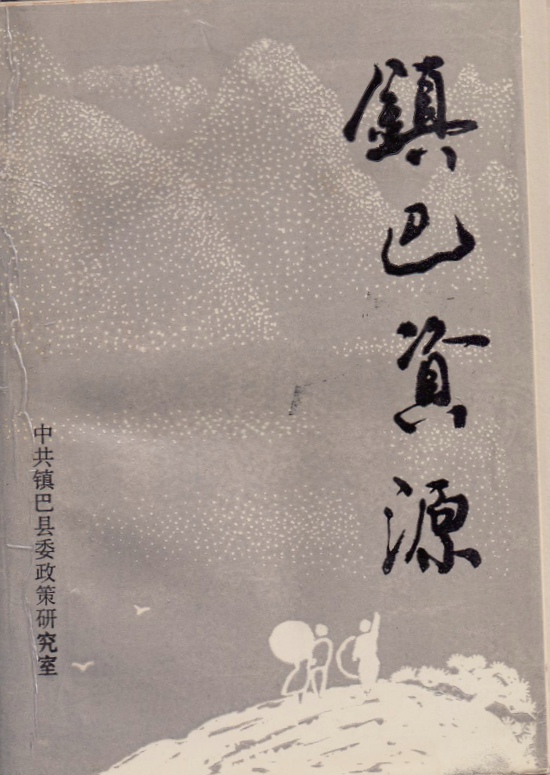 鎮巴資源
中共镇巴县委政策研究室